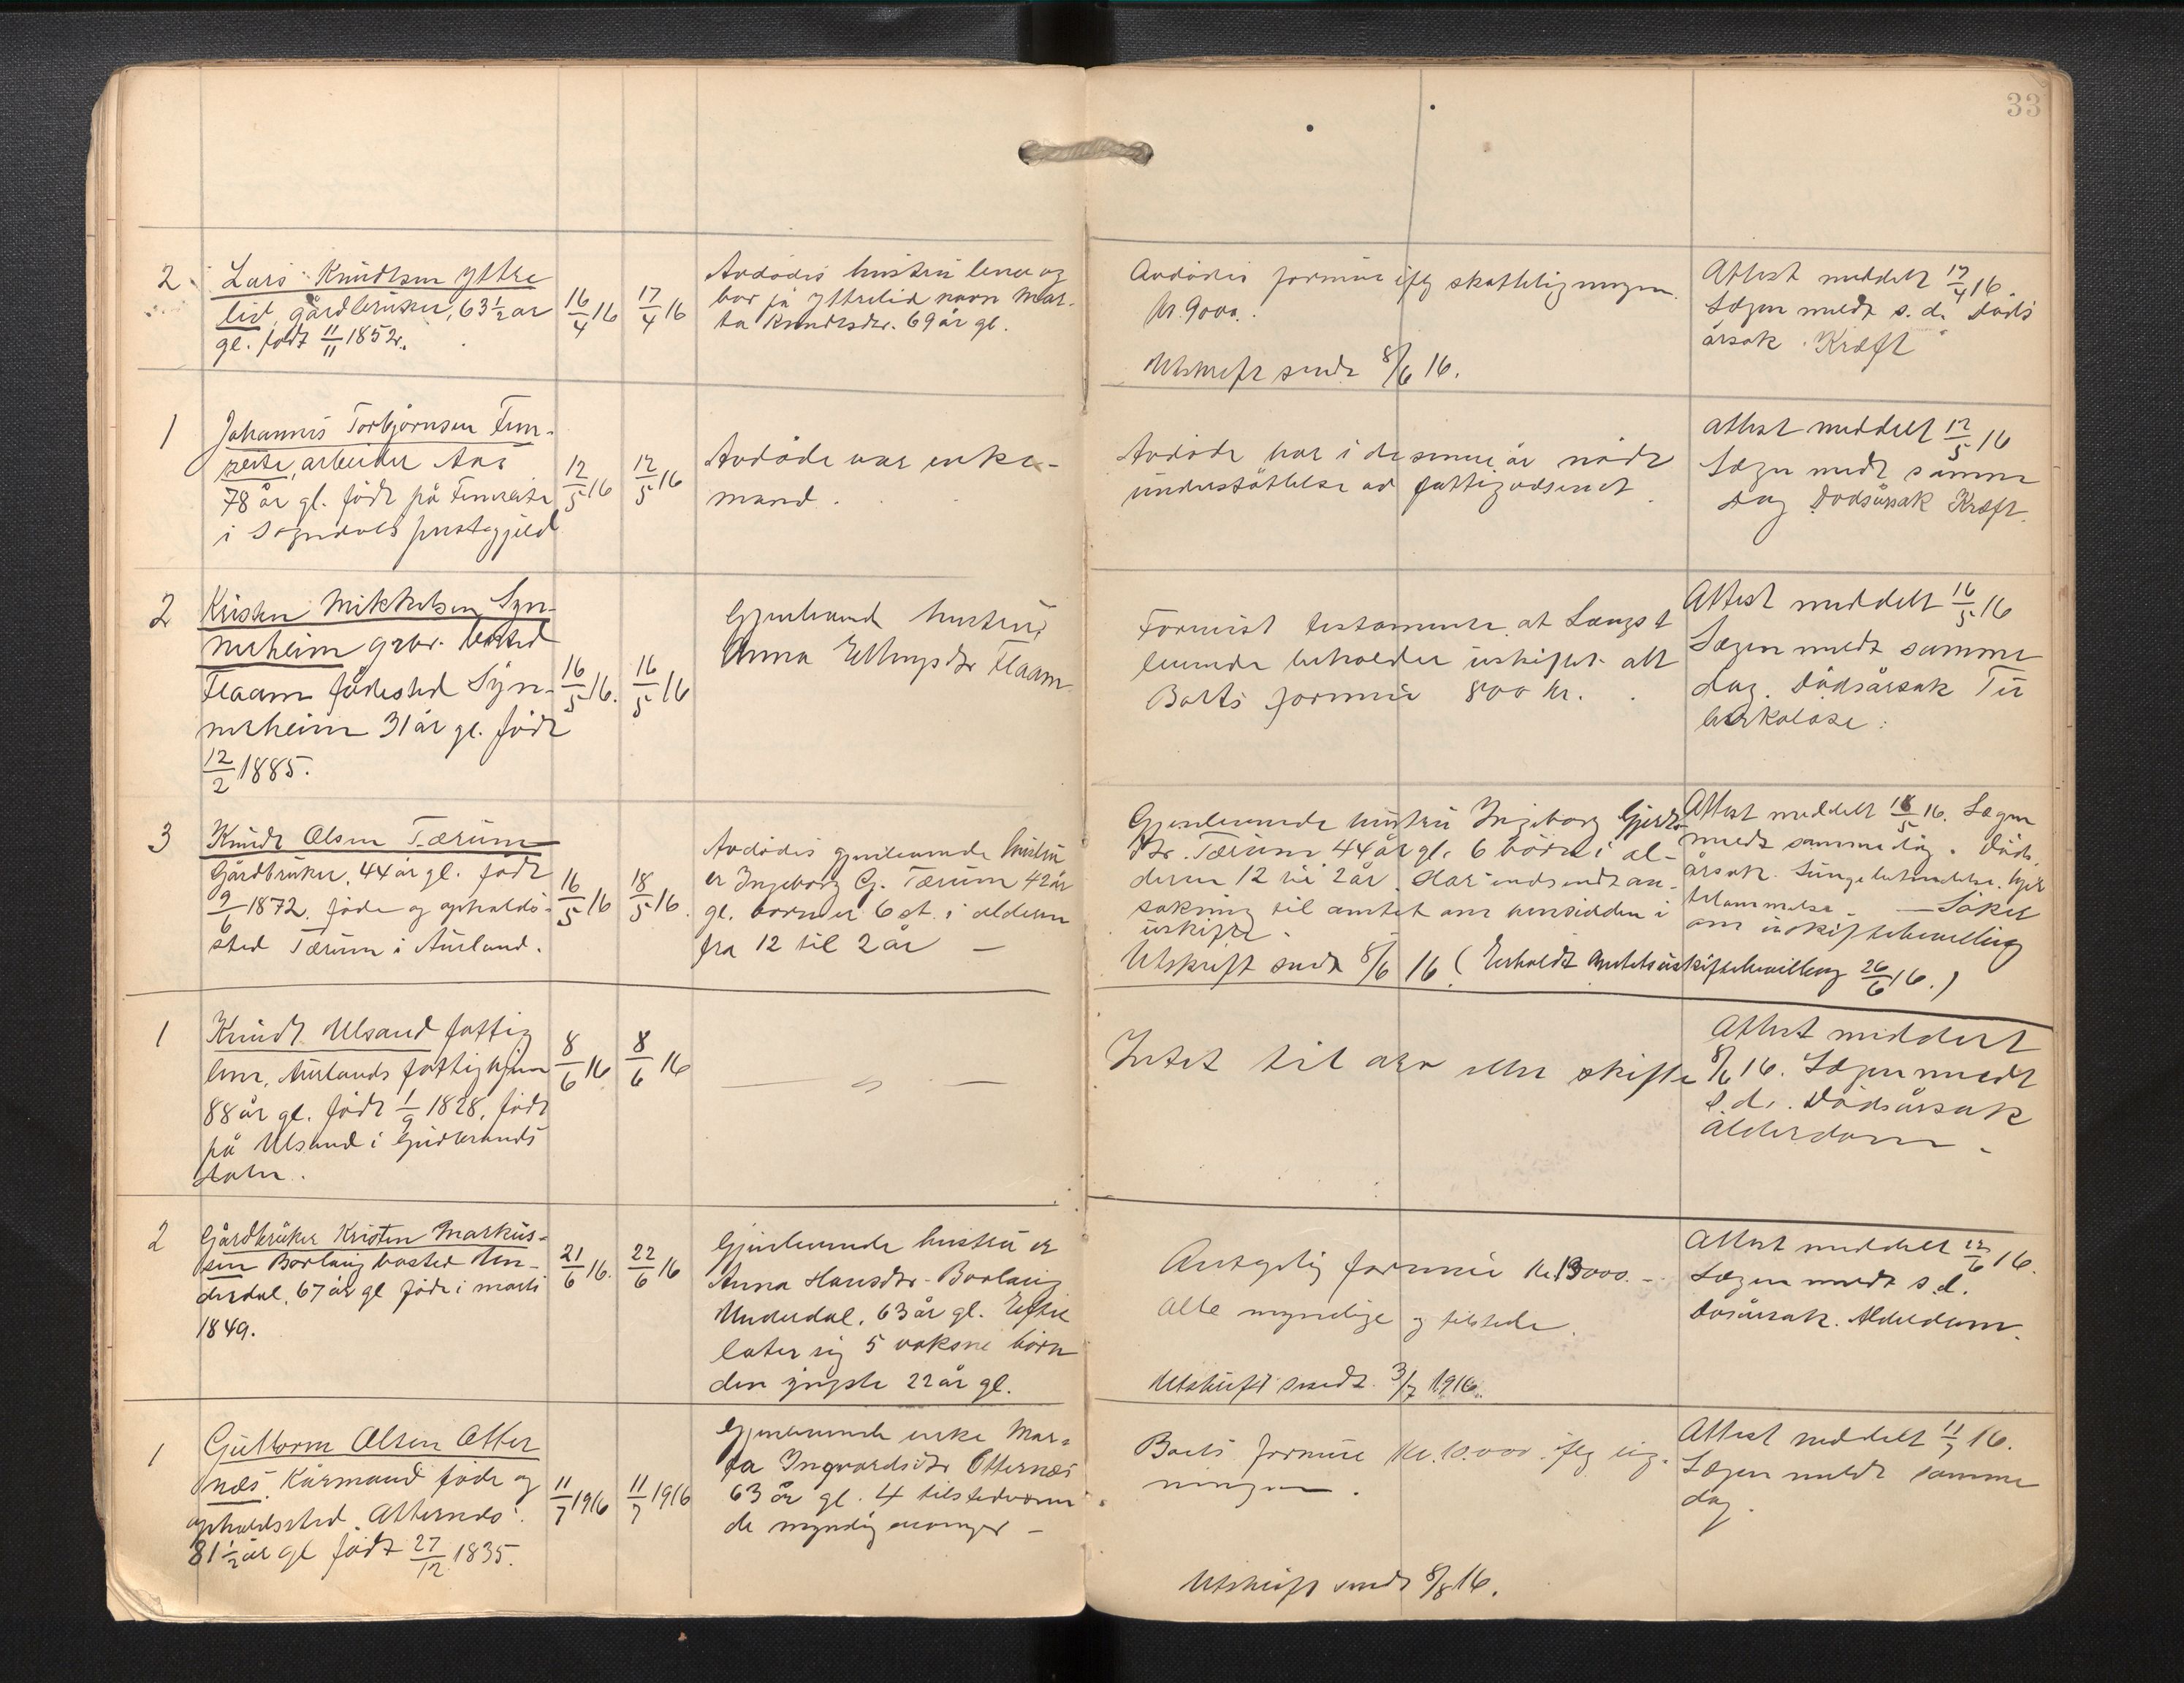 33
2
Lars Knudtsen Yttre
lid, gårdbruker, 63 1/2 år
gl. født 11/11 1852.
16/4 16
17/4 16
Avdødes hustru lever og
bor på Yttrelid navn Mar-
ta Knudtsdtr. 69 år gl.
Avdødes formue iflg skatteligningen
kr. 9000.
Utskrift sendt 8/6 16.
Attest meddelt 17/4 16
Lægen meldt s. d. Døds
årsak Kræft
1
Johannes Torbjørnsen Fim-
reite, arbeider
78 år gl. født på Fimreite
i Sogndals prestegjeld
12/5 16
12/5 16
Avdøde var enke-
mand.
Avdøde har i de senere år nådt
understøttelse av fattigvæsenet.
Attest meddelt 12/5 16
Lægen meldt samme
dag Dødsårsak Kræft.
2
Kristen Mikkelsen Syn-
nerheim grbr. bosted
Flaam fødested Syn-
nerheim 31 år gl. født
12/2 1885.
16/5 16.
16/5 16
Gjenlevende hustru,
Anna Ellingsdtr Flaam
Formist testamente at Længst
levende beholder uskiftet alt
Boets formue 800 kr.
Attest meddelt 16/5 16
Lægen meldt samme
dag. Dødsårsak Tu
berkolose.
3
Knudt Olsen Tærum
Gårdbruker, 44 år gl. født
9/6 1872. føde og opholds-
sted Tærum i Aurland.
16/5 16
18/5 16.
Avdødes gjenlevende hustru
er Ingeborg G. Tærum 42 år
gl. barn er 6 st. i alderen
fra 12 til 2 år —
Gjenlevende hustru Ingeborg Gjerts
dtr. Tærum 44 år gl. 6 børn i al-
deren 12 til 2 år. Har indsendt an-
søkning til amtet om hensidden i
uskifte.
Utskrift sendt 8/6 16 (Erholdt Amtets uskiftebevilling 26/6 16.)
Attest meddelt 18/5 16. Lægen
meldt samme dag. Døds
årsak. Lungebetændelse. hjer
— Søker
om uskiftebevilling
1
Knudt Ulsand fattig
lem, Aurlands fattighjem
88 år gl. født 1/9 1828, født
på Ulsand i Gudbrands
dalen.
8/6 16
8/6 16
Intet til arv eller skifte
Attest meddelt
8/6 16. Lægen meldt
s. d. Dødsårsak
Alderdom.
2
Gårdbruker Kristen Markus-
sen Borlaug bosted Un-
derdal, 67 år gl født i marts
1849.
21/6 16.
22/6 16
Gjenlevende hustru er
Anna Hansdtr. Borlaug
Underdal, 63 år gl. Efter
later sig 5 voksne børn
den yngste 22 år gl.
Antagelig formue kr. 13000. -
Alle myndige og tilstede.
Utskrift sendt 3/7 1916.
Attest meddelt 22/6 16.
Lægen meldt s. d.
Døsårsak. Alderdom.
1
Guttorm Olsen Otter
nes. Kårmand føde og
opholdssted Otternes.
81 1/2 år gl født 27/12 1835.
11/7 1916
11/7 1916
Gjenlevende enke Mar-
ta Ingvardsdtr Otternes
63 år gl. 4 tilstedværen
de myndig
Boets formue kr. 10.000 iflg lig-
ningen.
Utskrift sendt 8/8 16.
Attest meddelt 11/7 16.
Lægen meldt samme
dag.